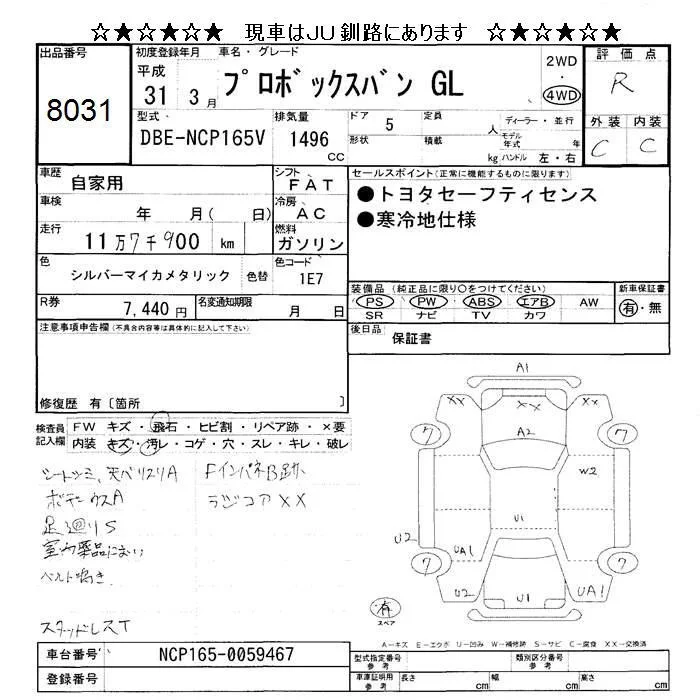 ☆★☆★☆★ 現車はJU釧路にあります ☆★☆★☆★
出品番号 8031
初度登録年月 平成 31 3月
車名・グレード プロボックスバン GL
2WD・4WD
評価点 R
外装 内装
C C
型式 DBE-NCP165V
排気量 1496 CC
ドア 5 定員 人
形状 積載 kg
ディーラー・並行
モデル年式 年
ハンドル 左・右
車歴 自家用
シフト FAT
車検 年 月( 日)
冷房 AC
走行 11万7千900 km
燃料 ガソリン
色 シルバーマイカメタリック 色替
色コード 1E7
R券 7,440円
名変通知期限 月 日
セールスポイント(正常に機能するものに限ります)
●トヨタセーフティセンス
●寒冷地仕様
装備品(純正品に限り○をつけてください)
PS PW ABS エアB AW
SR ナビ TV カワ
新車保証書
有・無
後日品 保証書
注意事項申告欄(不具合内容等は具体的に記入して下さい)
修復歴 有〔箇所 〕
検査員記入欄
FW キズ・飛石・ヒビ割・リペア跡・×要
内装 キズ・汚レ・コゲ・穴・スレ・キレ・破レ
シートシミ、天ベリスリA
ボデーウスA
足廻りS
室内薬品におい
ベルト鳴き
スタッドレスT
FインパネB跡
ラジコアXX
A1
XX XX XX
A2
7 7
W2
U1
U2
UA1
7 7
U2 U1 UA1
有
スペア
A-キズ E-エクボ U-凹み W-補修跡 S-サビ C-腐食 XX-交換済
車台番号 NCP165-0059467
登録番号
型式指定番号 参考
類別区分番号 参考
車庫証明用 参考
長さ cm 幅 cm 高さ cm